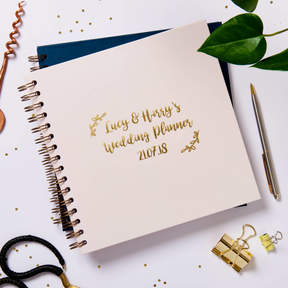 Lucy & Harry's
Wedding Planner
21.07.18